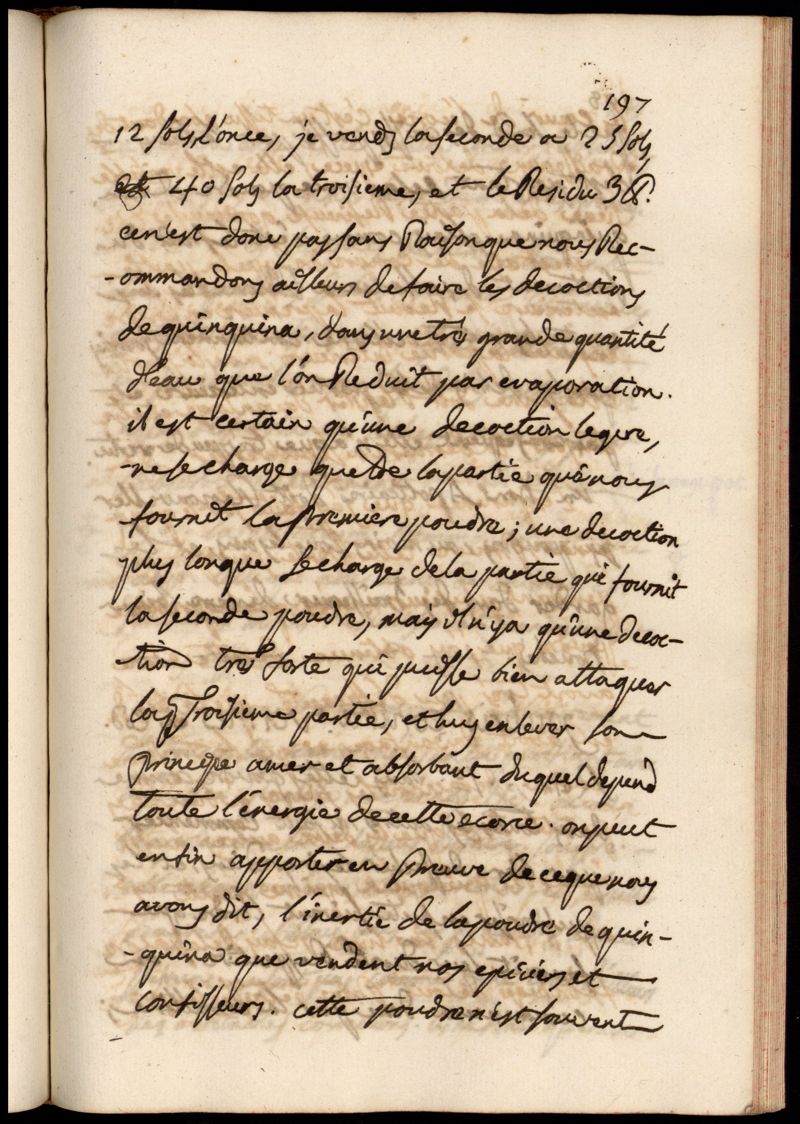 197
12 sols l'once, je vends la seconde a 25 sols,
40 sols la troisieme, et le Residu 3 ₶.
cen'est donc pas sans Raison que nous Rec-
-ommandons ailleurs de faire les decoctions
de quinquina, dans une tres grande quantité
d'eau que l'on Reduit par evaporation.
il est certain qu'une decoction legere,
ne se charge que de la partie que nous
fournit la premiere poudre; une decoction
plus longue se charge de la partie qui fournit
la seconde poudre, mais il n'y a qu'une decoc-
-tion tres forte qui puisse bien attaquer
la troisieme partie, et luy enlever son
principe amer et absorbant duquel depend
toute l'énergie de cette ecorce. on peut
enfin apporter en preuve de ce que nous
avons dit, l'inertie de la poudre de quin-
-quina que vendent nos epiciers et
confisseurs. cette poudre n'est souvent